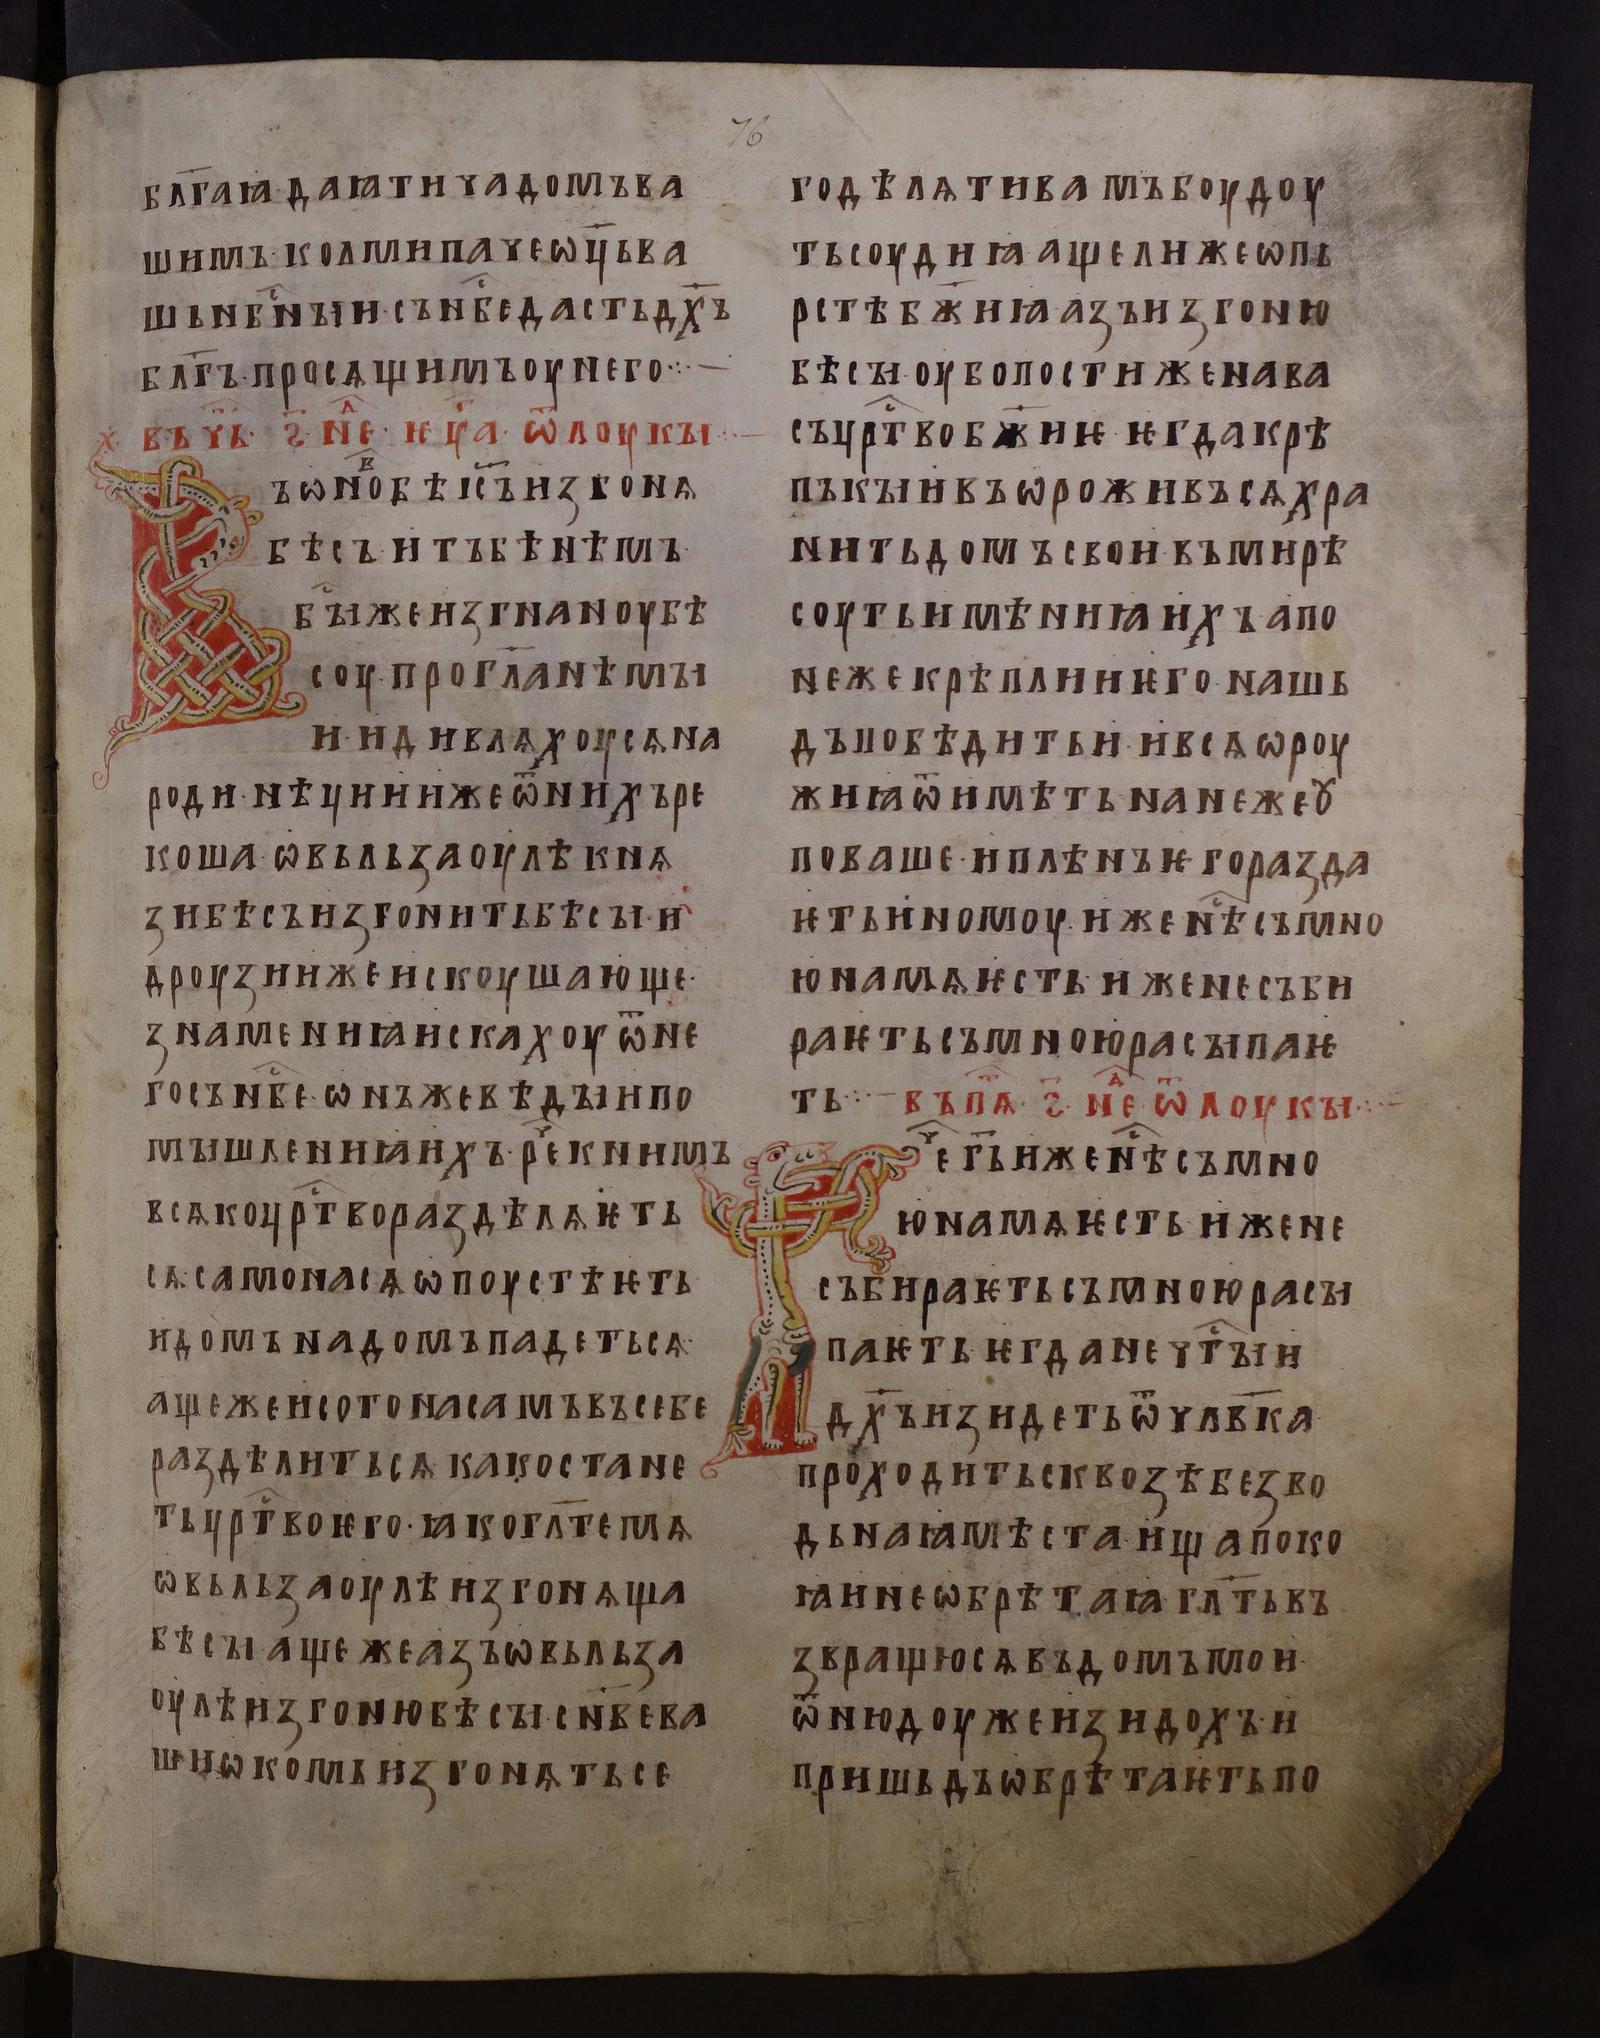 76
бл҃гаꙗ даꙗти чадомъ ва
шимъ· колми паче ѡц҃ь ва
шь нбⷭ҇ныи· съ нбⷭ҇е дасть дх҃ъ
бл҃гъ· просѧщимъ оу него·:·—
въ чтⷡ҇· ѕ҃· неⷣ· ѥуⷢ҇а· ѿ лоукы·:·—
ъ ѡноⷡ бѣ іс҃ъ изгонѧ
бѣсъ· и тъ бѣ нѣмъ·
быⷭ҇ же изгнаноу бѣ
соу· прогл҃а нѣмы
и· и дивлѧхоу сѧ на
роди· нѣции иже ѿ нихъ ре
коша· ѡ вьльзаоулѣ кнѧ
зи бѣсъ изгонить бѣсы· и
дроузии же искоушающе·
знамениꙗ искахоу ѿ не
го съ нбⷭ҇е· ѡнъ же вѣдыи по
мышлениꙗ ихъ· реⷱ к нимъ
всѧко црⷭ҇тво раздѣлѧѥть
сѧ само на сѧ ѡпоустѣѥть
и домъ на домъ падеть сѧ·
аще же и сотона самъ въ себе
раздѣлить сѧ како стане
ть црⷭ҇тво ѥго· ꙗко гл҃те мѧ
ѡ вьльзаоулѣ изгонѧща
бѣсы· аще же азъ ѡ вьльза
оулѣ изгоню бѣсы· сн҃ве ва
ши ѡ комь изгонѧть се
го дѣлѧ ти вамъ боудоу
ть соудиꙗ· аще ли же ѡ пь
рстѣ бж҃иꙗ азъ изгоню
бѣсы· оубо постиже на ва
съ црⷭ҇тво бж҃иѥ· ѥгда крѣ
пъкыи въѡроживъ сѧ хра
нить домъ свои· въ мирѣ
соуть имѣниꙗ ихъ· а по
неже крѣплии ѥго нашь
дъ побѣдить и· и всѧ ѡроу
жиꙗ ѿиметь· на неже ѹ
поваше· и плѣнъ ѥго разда
ѥть иномоу· иже нѣⷭ҇ съ мно
ю на мѧ ѥсть· и же не съби
раѥть съ мною расыпаѥ
ть·:·— въ пѧⷮ· ѕ҃· неⷣ· ѿ лоукы·:·—
еⷱ г҃ь· иже нѣⷭ҇ съ мно
ю на мѧ ѥсть· и же не
събираѥть съ мною расы
паѥть· ѥгда нечтⷭ҇ыи
дх҃ъ изидеть ѿ члв҃ка
проходить сквозѣ безво
дьнаꙗ мѣста· ища поко
ꙗ· и не ѡбрѣтаꙗ гл҃ть· въ
звращю сѧ въ домъ мои·
ѿнюдоу же изидохъ· и
пришьдъ ѡбрѣтаѥть по